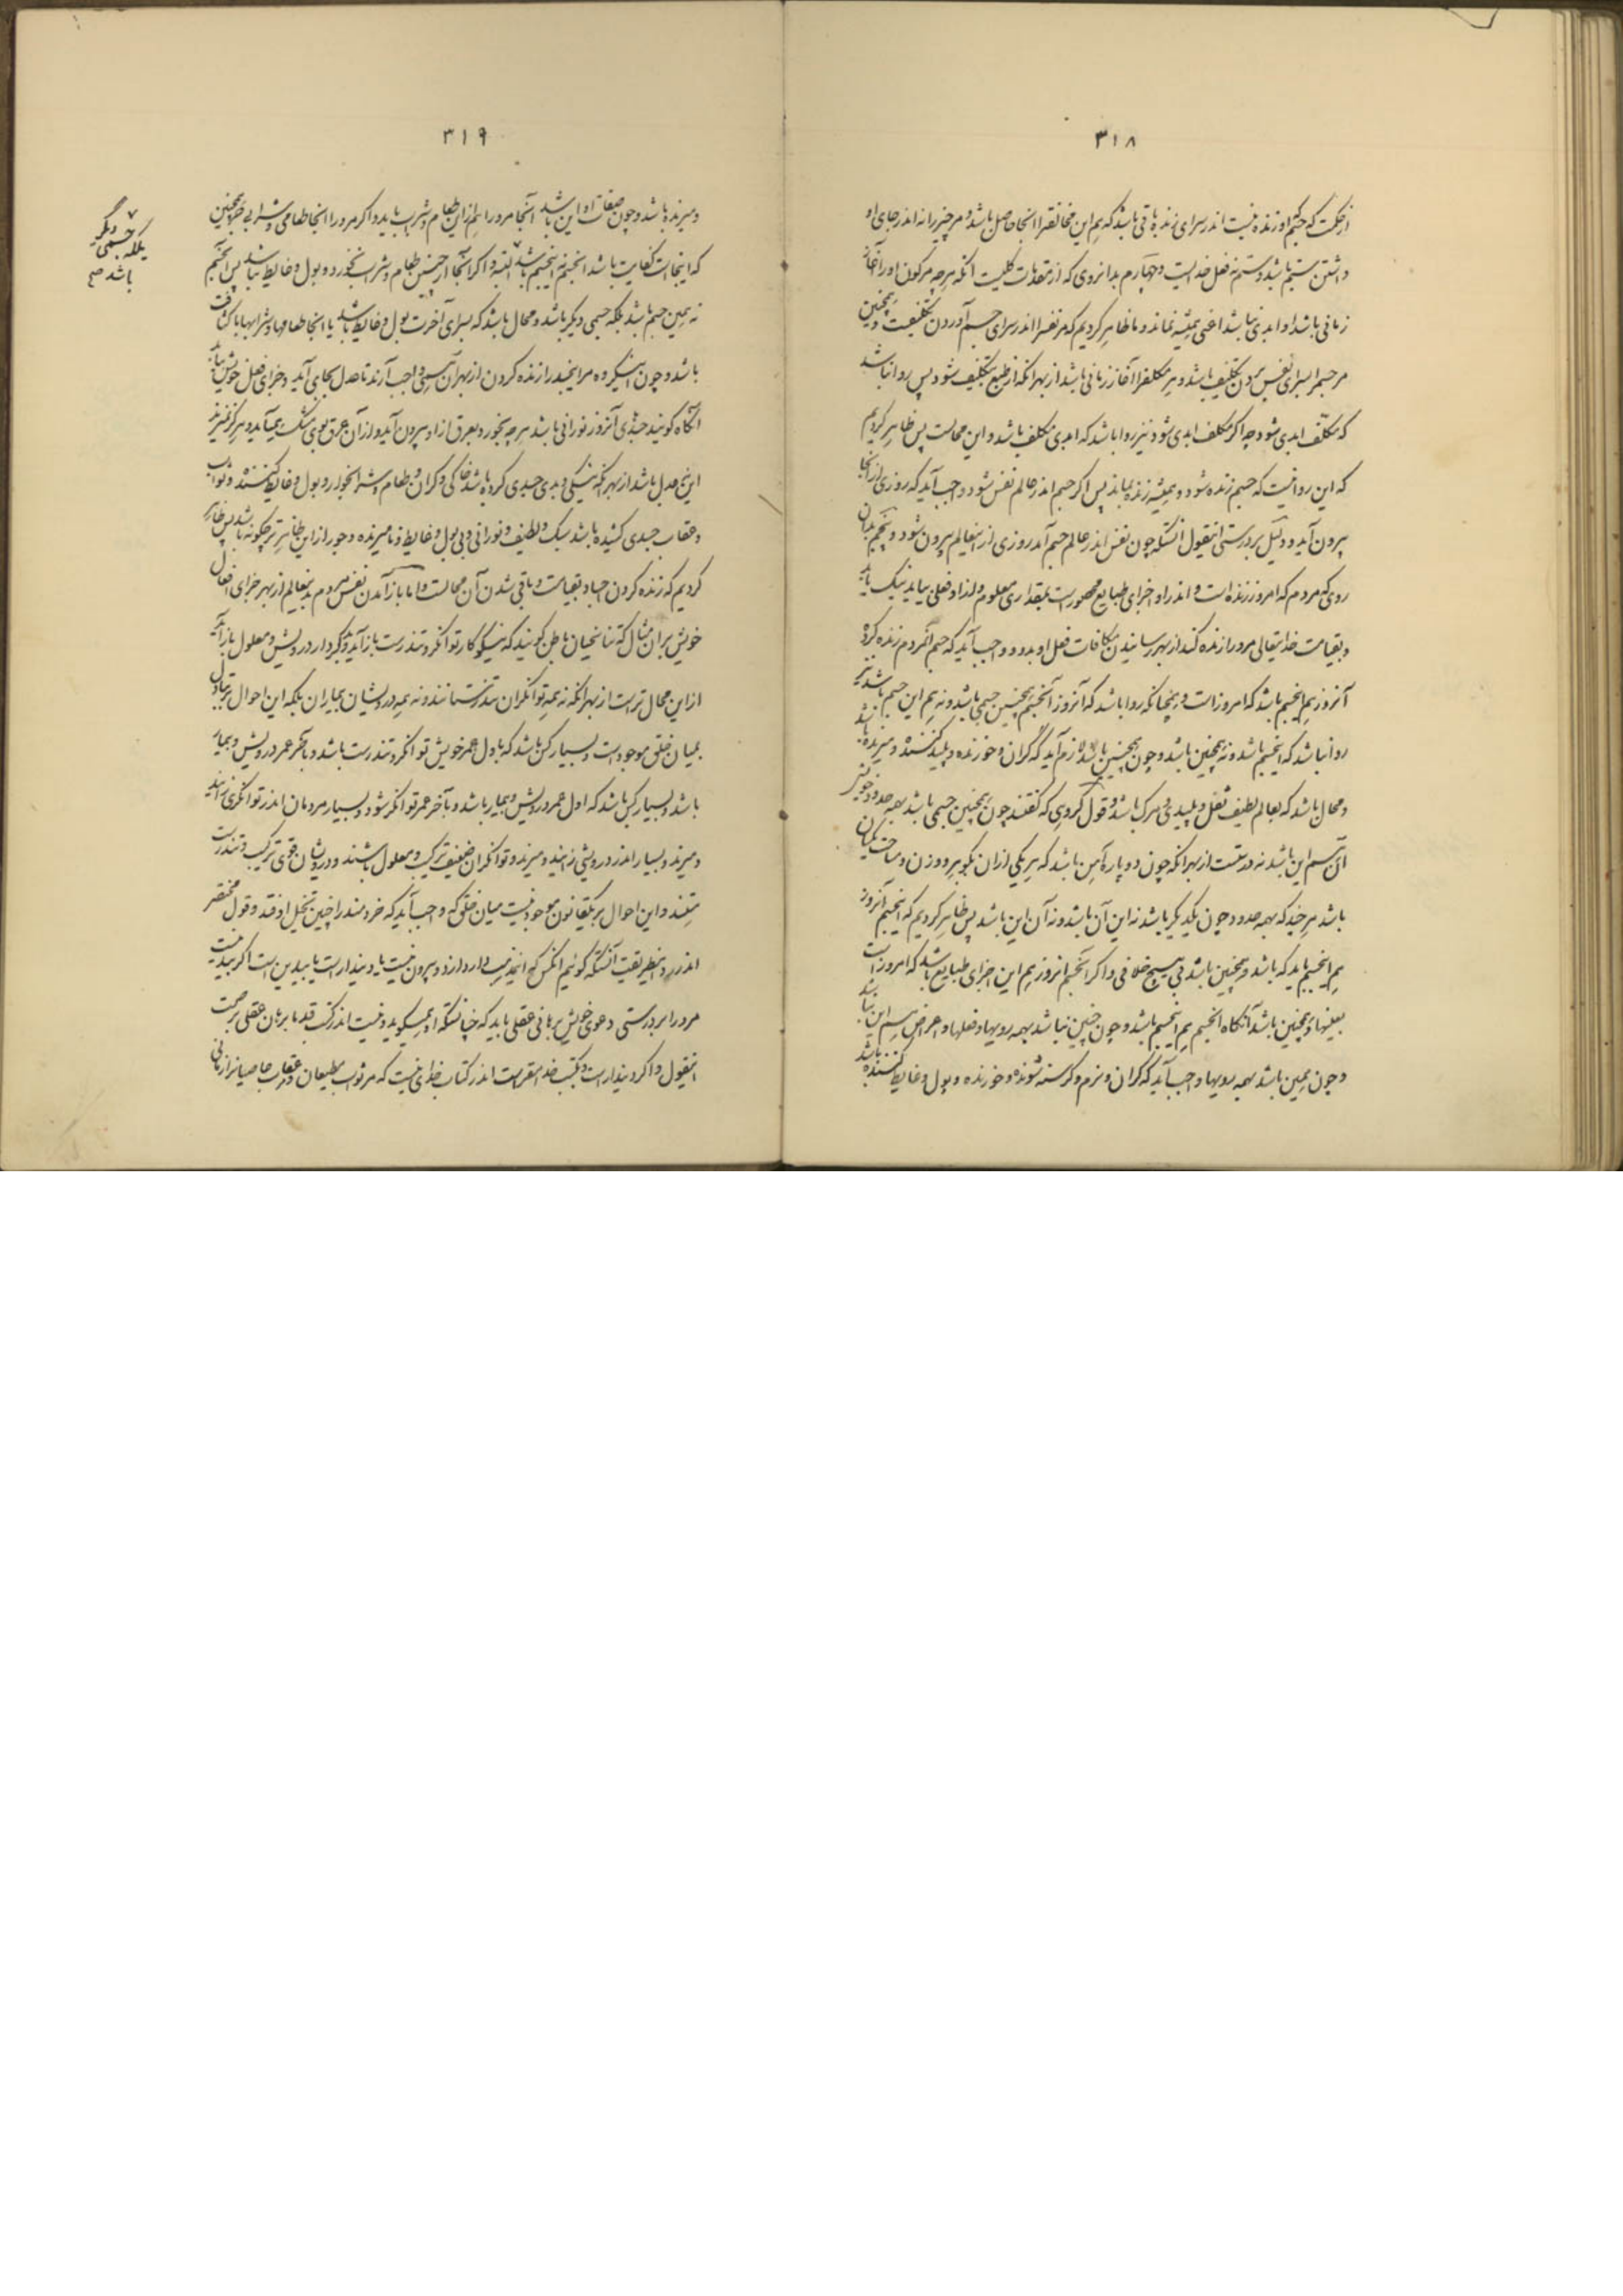 ۳۱۸
از حکمت که جسم او زنده نیست اندر سرای زنده باقی باشد که هم این مخالفتر اانجا حاصل باشد و مر چیز را نه اندر جای او
داشتن ستم باشد و ستم نه فعل خدا است و چهارم بدانروی که از مقدمات کلیست آنکه هر چه مر کون او را آغاز
زمانی باشد او ابدی نباشد اعنی همیشه نماند و ما ظاهر کردیم که مر نفس را اندر سرای جسم آوردن تکلیفست و همچنین
مر جسم را بسرای نفس بردن تکلیف باشد و هر مکلفرا آغاز زمانی باشد از بهر آنکه از طبع بتکلیف شود پس روا نباشد
که مکلف ابدی شود چه اگر مکلف ابدی شود نیز روا باشد که ابدی مکلف باشد و این محالست پس ظاهر کردیم
که این روا نیست که جسم زنده شود و همیشه زنده بماند پس اگر جسم اندر عالم نفس شود واجب آید که روزی از انجا
بیرون آید و دلیل بر درستی اینقول آنستکه چون نفس اندر عالم جسم آمد روزی از اینعالم بیرون شود و پنجم بدان
روی که مردم که امروز زنده است و اندر او اجزای طبایع محصورست بمقداری معلوم و از او فعلی بیاید نیک یا بد
و بقیامت خدایتعالی مر ورا زنده کند از بهر رسانیدن مکافات فعل او بدو و واجب آید که جسم آنمردم زنده کرده
آنروز هم اینجسم باشد که امروز است و همچنانکه روا باشد که آنروز آنجسم همچنین جسمی باشد و نه هم این جسم باشد نیز
روا نباشد که اینجسم باشد و نه همچنین باشد و چون همچنین باشد لازم آید که گران و خورنده و پلید کننده و میرنده باشد
و محال باشد که بعالم لطیف ثقل و پلیدی و مرک باشد و قول گروهی که گفتند چون همچنین جسمی باشد بهمه حدود خویش
آن جسم این باشد نه درستست از بهر آنکه چون دو پاره آهن باشد که هر یکی از ان بگوهر و وزن و مساحت یکسان
باشد هر چند که بهمه حدود چون یکدیگر باشد نه این آن باشد و نه آن این باشد پس ظاهر کردیم که اینجسم آنروز
هم اینجسم باید که باشد و همچنین باشد بی هیچ خلافی و اگر آنجسم آنروز هم این اجزای طبایع باشد که امروز است
بعینها و همچنین باشد آنگاه آنجسم هم اینجسم باشد و چون چنین نباشد بهمه رویها و فعلها و عراض هم این نباشد
و چون همین باشد بهمه رویها واجب آید که گران و نرم و گرسنه شونده و خورنده و بول و غایط کننده باشد
۳۱۹
و میرنده باشد و چون صفات او این باشد آنجا مر ورا هم از این طعام و شراب باید و اگر مر ورا آنجا طعامی و شرابی جز همچنین
که اینجاست کفایت باشد آنجسم نه اینجسم باشد البته و اگر آنجا از جنس طعام و شراب نخورد و بول و غایط نباشد پس آنجسم
نه همین جسم باشد بلکه جسمی دیگر باشد و محال باشد که بسرای آخرت بول و غایط باشد یا آنجا طعامها و شرابها با کثافت
باشد و چون اینگروه مر اینجسد را زنده کردن از بهر آن همی واجب آرند تا عدل بجای آید و جزای فعل خویش بیابد
آنگاه گویند جسدی آنروز نورانی باشد هر چه بخورد بعرق از او بیرون آید و از آن عرق بوی مشک همی آید و هرگز نمیرد
این عدل باشد از بهر آنکه نیکی و بدی جسدی کرده باشد خاکی و گران و طعام و شراب خوار و بول و غایط کننده و ثواب
و عقاب جسدی کشیده باشد سبک و لطیف و نورانی و بی بول و غایط و نا میرنده و جور از این ظاهرتر چگونه باشد پس ظاهر
کردیم که زنده کردن اجساد بقیامت و باقی شدن آن محالست و اما باز آمدن نفس مردم بدینعالم از بهر جزای افعال
خویش بران مثال که تناسخیان باطن گویند که نیکو کار توانگر و تندرست باز آید و بدکردار درویش و معلول باز آید
از این محال تر است از بهر آنکه نه همه توانگران تندرستانند و نه همه درویشان بیماران بلکه این احوال بر تبادل
بمیان خلق موجود است و بسیار کس باشد که باول عمر خویش توانگر و تندرست باشد و بآخر عمر درویش و بیمار
باشد و بسیار کس باشد که اول عمر درویش و بیمار باشد و بآخر عمر توانگر شود و بسیار مردمان اندر توانگری زایند
و میرند و بسیار اندر درویشی زایند و میرند و توانگران ضعیف ترکیب و معلول باشند و درویشان قوی ترکیب و تندرست
هستند و این احوال بر یکقانون موجود نیست میان خلق که واجب آید که خردمند را چنین تخیل اوفتد و قول مختصر
اندر رد اینطریقت آنستکه گوئیم آنکس که این مذهب دارد از دو بیرون نیست یا دیندار است یا بیدین است اگر بیدینست
مر ورا بر درستی دعوی خویش برهانی عقلی باید که چنانستکه او همیگوید و نیست اندر کتب قدما برهان عقلی بر صحت
اینقول و اگر دیندار است و بکتب خدا مقر است اندر کتاب خدای نیست که مر ثواب مطیعان و عقاب عاصیانرا زمانی
بلکه جسمی
دیگر
باشد صح